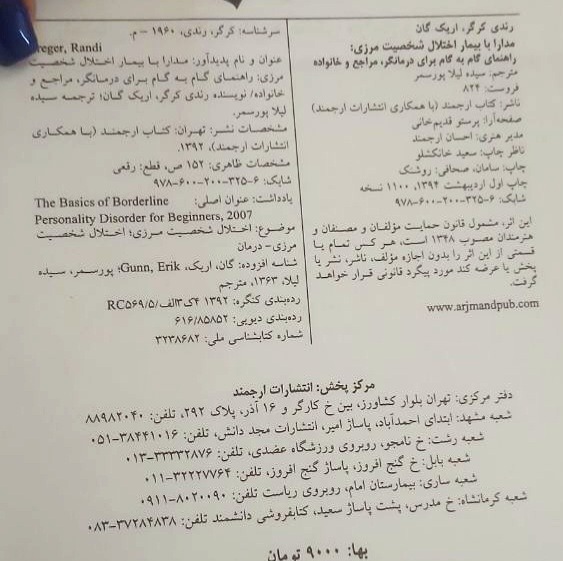 رندی کرگر، اریک گان
مدارا با بیمار اختلال شخصیت مرزی:
راهنمای گام به گام برای درمانگر، مراجع و خانواده
مترجم: سیده لیلا پورسمر
فروست: ۸۲۴
ناشر: کتاب ارجمند (با همکاری انتشارات ارجمند)
صفحه‌آرا: پرستو قدیم‌خانی
مدیر هنری: احسان ارجمند
ناظر چاپ: سعید خانکشلو
چاپ: سامان، صحافی: روشنک
چاپ اول اردیبهشت ۱۳۹۴، ۱۱۰۰ نسخه
شابک: ۶-۳۲۵-۲۰۰-۶۰۰-۹۷۸
این اثر، مشمول قانون حمایت مؤلفان و مصنفان و
هنرمندان مصوب ۱۳۴۸ است، هر کس تمام یا
قسمتی از این اثر را بدون اجازه مؤلف، ناشر، نشر یا
پخش یا عرضه کند مورد پیگرد قانونی قرار خواهد
گرفت.
www.arjmandpub.com
سرشناسه: کرگر، رندی، ۱۹۶۰ - م.
reger, Randi
عنوان و نام پدیدآور: مدارا با بیمار اختلال شخصیت
مرزی: راهنمای گام به گام برای درمانگر، مراجع و
خانواده/ نویسنده رندی کرگر، اریک گان؛ ترجمه سیده
لیلا پورسمر.
مشخصات نشر: تهران: کتاب ارجمند (با همکاری
انتشارات ارجمند)، ۱۳۹۲.
مشخصات ظاهری: ۱۵۲ ص، قطع: رقعی
شابک: ۶-۳۲۵-۲۰۰-۶۰۰-۹۷۸
یادداشت: عنوان اصلی: The Basics of Borderline
Personality Disorder for Beginners, 2007
موضوع: اختلال شخصیت مرزی؛ اختلال شخصیت
مرزی - درمان
شناسه افزوده: گان، اریک، Gunn, Erik؛ پورسمر، سیده
لیلا، ۱۳۶۳، مترجم
رده‌بندی کنگره: ۱۳۹۲ ۴ک۳الف/RC۵۶۹/۵
رده‌بندی دیویی: ۶۱۶/۸۵۸۵۲
شماره کتابشناسی ملی: ۳۲۳۸۶۸۲
مرکز پخش: انتشارات ارجمند
دفتر مرکزی: تهران بلوار کشاورز، بین خ کارگر و ۱۶ آذر، پلاک ۲۹۲، تلفن: ۸۸۹۸۲۰۴۰
شعبه مشهد: ابتدای احمدآباد، پاساژ امیر، انتشارات مجد دانش، تلفن: ۳۸۴۴۱۰۱۶-۰۵۱
شعبه رشت: خ نامجو، روبروی ورزشگاه عضدی، تلفن: ۳۳۳۳۲۸۷۶-۰۱۳
شعبه بابل: خ گنج افروز، پاساژ گنج افروز، تلفن: ۳۲۲۲۷۷۶۴-۰۱۱
شعبه ساری: بیمارستان امام، روبروی ریاست تلفن: ۸۰۲۰۰۹۰-۰۹۱۱
شعبه کرمانشاه: خ مدرس، پشت پاساژ سعید، کتابفروشی دانشمند تلفن: ۳۷۲۸۴۸۳۸-۰۸۳
بها: ۹۰۰۰ تومان